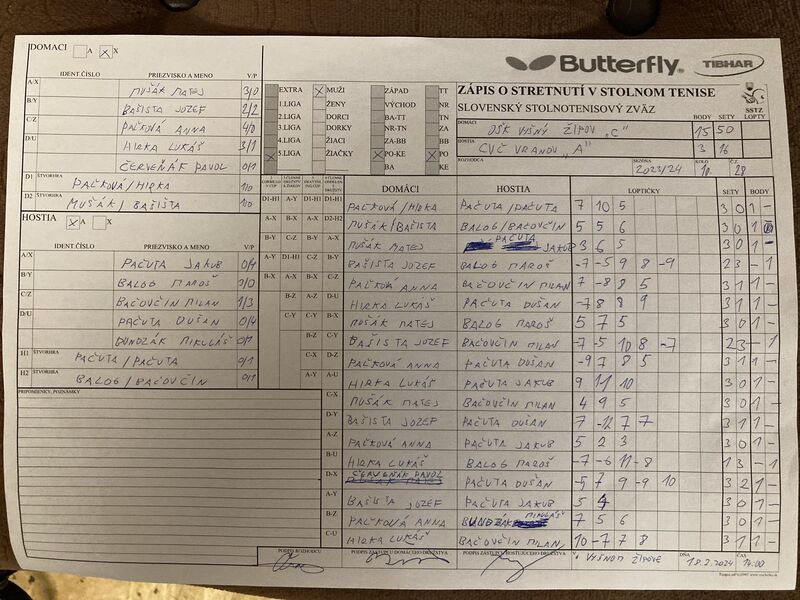 DOMACI A X
IDENT.ČÍSLO PRIEZVISKO A MENO V/P
A/X MUŠÁK MATEJ 3/0
B/Y BAŠISTA JOZEF 2/2
C/Z PAĽKOVÁ ANNA 4/0
D/U HIRKA LUKÁŠ 3/1
ČERVEŇÁK PAVOL 0/1
D1 ŠTVORHRA PAĽKOVÁ/HIRKA 1/0
D2 ŠTVORHRA MUŠÁK/BAŠISTA 1/0
HOSTIA A X
IDENT.ČÍSLO PRIEZVISKO A MENO V/P
A/X PAČUTA JAKUB 0/4
B/Y BALOG MAROŠ
C/Z BAČOVČIN MILAN 1/3
D/U PAČUTA DUŠAN 0/4
DUNDZÁK MIKULÁŠ 0/1
H1 ŠTVORHRA PAČUTA/PAČUTA 0/1
H2 ŠTVORHRA BALOG/BAČOVČIN 0/1
PRIPOMIENKY, POZNÁMKY
Butterfly TIBHAR
EXTRA MUŽI ZÁPAD TT
1.LIGA ŽENY VÝCHOD NR
2.LIGA DORCI BA-TT TN
3.LIGA DORKY NR-TN ZA
4.LIGA ŽIACI ZA-BB BB
5.LIGA ŽIAČKY PO-KE PO
BA KE
ZÁPIS O STRETNUTÍ V STOLNOM TENISE
SLOVENSKÝ STOLNOTENISOVÝ ZVÄZ
SSTZ
BODY SETY LOPTY
DOMÁCI OŠK VYŠNÝ ŽIPOV "C" 15 50
HOSTIA CVČ VRANOV "A" 3 16
ROZHODCA SEZÓNA 2023/24 KOLO 10. Č.Z. 28
DOMÁCI HOSTIA LOPTIČKY SETY BODY
D1-H1 PAĽKOVÁ/HIRKA PAČUTA/PAČUTA 7 10 5 3 0 1 -
D2-H2 MUŠÁK/BAŠISTA BALOG/BAČOVČIN 5 5 6 3 0 1
A-X MUŠÁK MATEJ PAČUTA JAKUB 3 6 5 3 0 1 -
B-Y BAŠISTA JOZEF BALOG MAROŠ -7 -5 9 8 -9 2 3 - 1
C-Z PAĽKOVÁ ANNA BAČOVČIN MILAN 7 -8 8 5 3 1 1 -
D-U HIRKA LUKÁŠ PAČUTA DUŠAN -7 8 8 9 3 1 1 -
B-X MUŠÁK MATEJ BALOG MAROŠ 5 7 5 3 0 1 -
C-Y BAŠISTA JOZEF BAČOVČIN MILAN -7 -5 10 8 -7 2 3 - 1
D-Z PAĽKOVÁ ANNA PAČUTA DUŠAN -9 7 8 5 3 1 1 -
A-U HIRKA LUKÁŠ PAČUTA JAKUB 9 11 10 3 0 1 -
C-X MUŠÁK MATEJ BAČOVČIN MILAN 4 9 5 3 0 1 -
D-Y BAŠISTA JOZEF PAČUTA DUŠAN 7 -12 7 7 3 1 1 -
A-Z PAĽKOVÁ ANNA PAČUTA JAKUB 5 2 3 3 0 1 -
B-U HIRKA LUKÁŠ BALOG MAROŠ -7 -6 11 -8 1 3 - 1
D-X ČERVEŇÁK PAVOL PAČUTA DUŠAN -5 7 9 -9 10 3 2 1 -
A-Y BAŠISTA JOZEF PAČUTA JAKUB 5 4 3 0 1 -
B-Z PAĽKOVÁ ANNA MIKULÁŠ 7 5 6 3 0 1 -
C-U HIRKA LUKÁŠ BAČOVČIN MILAN 10 -7 7 8 3 1 1 -
PODPIS ROZHODCU PODPIS ZÁSTUPCU DOMÁCEHO DRUŽSTVA PODPIS ZÁSTUPCU HOSŤUJÚCEHO DRUŽSTVA V VYŠNOM ŽIPOVE DŇA 18.2.2024 ČAS 14:00